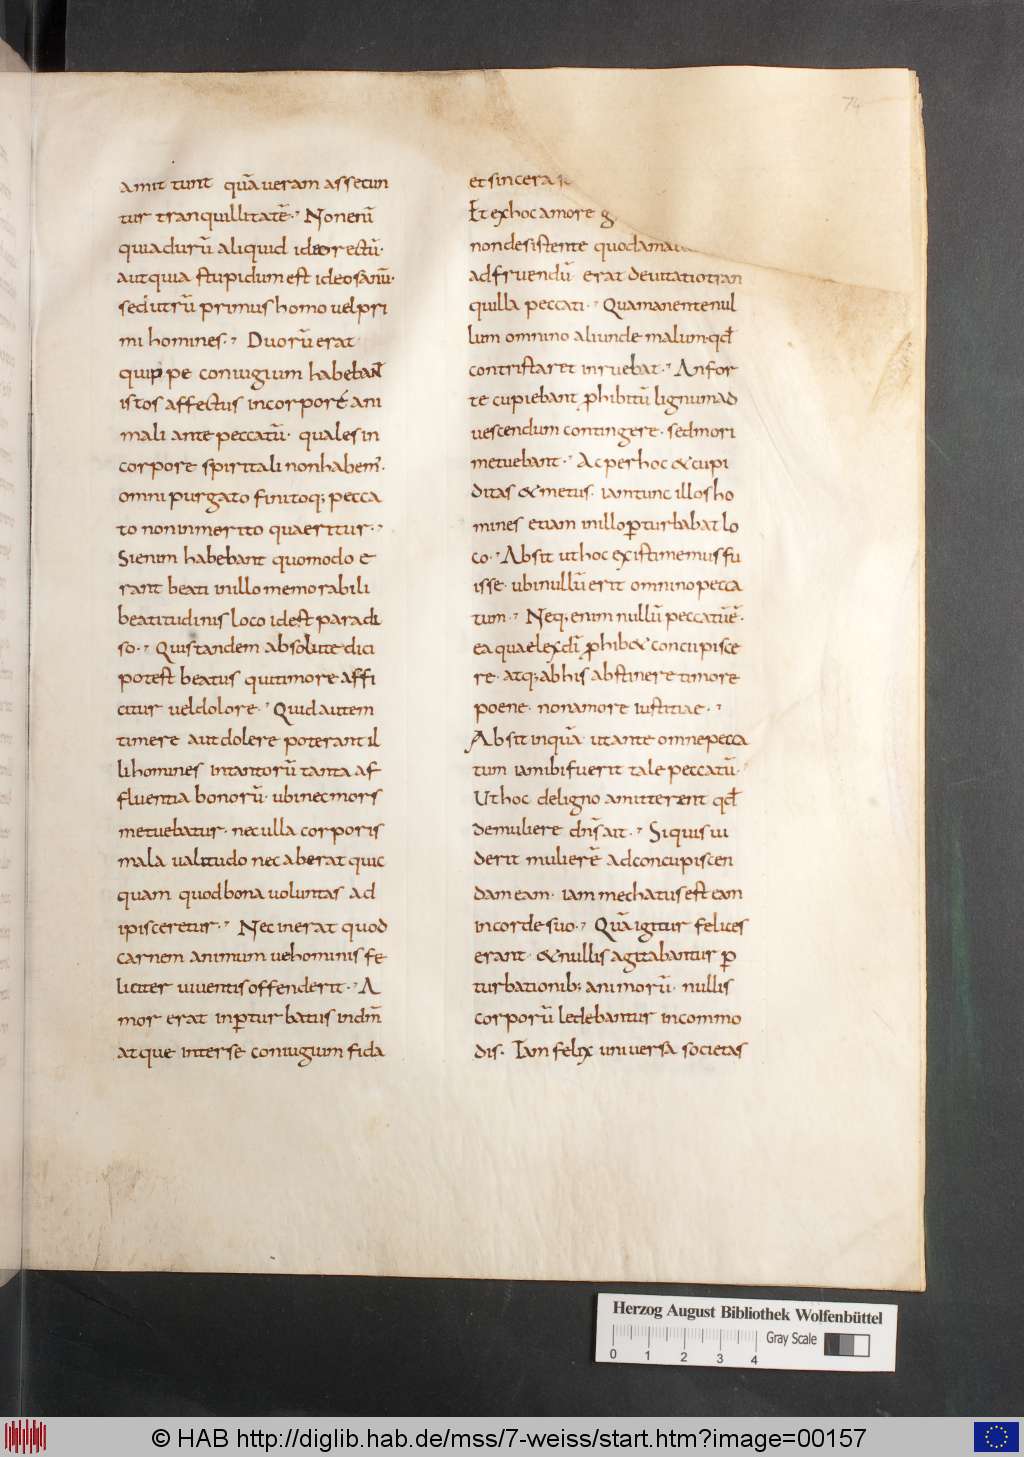 74
amittunt quā ueram assecun
tur tranquillitatē. Non enī
quia durū aliquid ideo rectū.
aut quia stupidum est ideo sanū.
sed utrū primus homo uel pri
mi homines. Duorū erat
quippe coniugium habebant
istos affectus in corpore ani
mali ante peccatū. quales in
corpore spiritali non habem.
omni purgato finitoq; pecca
to non inmerito quaeritur.
Si enim habebant quomodo e
rant beati in illo memorabili
beatitudinis loco id est paradi
so. Quis tandem absolute dici
potest beatus qui timore affi
citur uel dolore. Quid autem
timere aut dolere poterant il
li homines in tantorū tanta af
fluentia bonorū. ubi nec mors
metuebatur. nec ulla corporis
mala ualitudo nec aberat quic
quam quod bona uoluntas ad
ipisceretur. Nec inerat quod
carnem animum ue hominis fe
liciter uiuentis offenderit. A
mor erat inꝑturbatus in dm̄
atque inter se coniugium fida
et sincera
Et ex hoc amore
non desistente quodama
ad fruendū erat deuitatio tran
quilla peccati. Qua manente nul
lum omnino aliunde malum qđ
contristaret inruebat. An for
te cupiebant ꝓhibitū lignum ad
uescendum contingere. sed mori
metuebant. Ac per hoc & cupi
ditas & metus. iam tunc illos ho
mines etiam in illo ꝑturbabat lo
co. Absit ut hoc existimemus fu
isse. ubi nullū erit omnino pecca
tum. Neq; enim nullū peccatū ē.
ea quae lex dī ꝓhib& concupisce
re. atq; ab his abstinere timore
poene. non amore iustitiae.
Absit inquā. ut ante omne pecca
tum iam ibi fuerit tale peccatū.
Ut hoc de ligno amitterent qđ
de muliere dn̄s ait. Si quis ui
derit mulierē ad concupiscen
dam eam. iam mechatus est eam
in corde suo. Quā igitur felices
erant. & nullis agitabantur ꝑ
turbationib; animorū. nullis
corporū ledebantur incommo
dis. Tam felix uniuersa societas
Herzog August Bibliothek Wolfenbüttel
Gray Scale
0 1 2 3 4
© HAB http://diglib.hab.de/mss/7-weiss/start.htm?image=00157